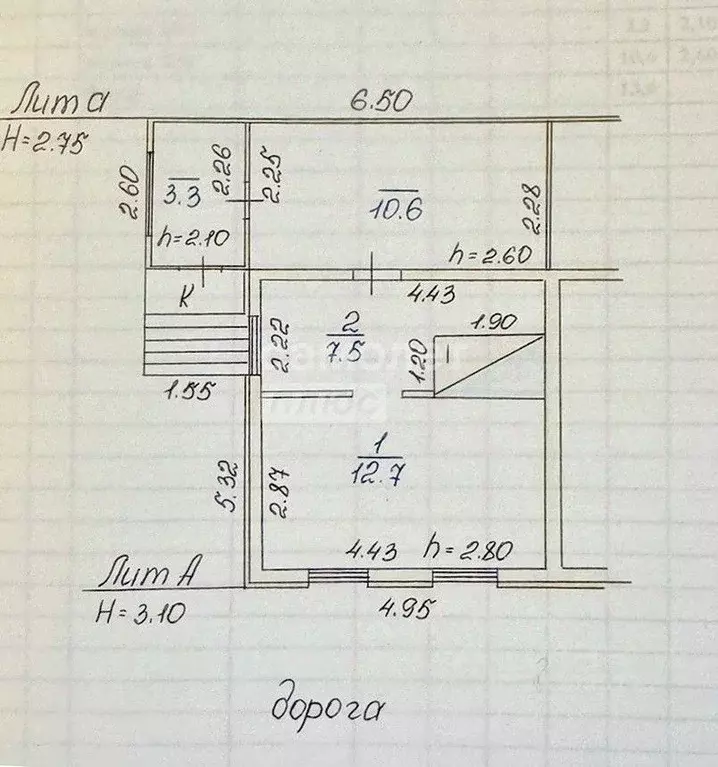 3,3 2,10
10,6 2,60
13,9
Лит а
6.50
H=2.75
2.60
3.3
2.26
2.25
10.6
2.28
h=2.10
h=2.60
К
4.43
1.90
2.22
2
7.5
1.20
самолет
плюс
1.55
1
12.7
5.32
2.87
4.43
h=2.80
Лит А
H=3.10
4.95
дорога